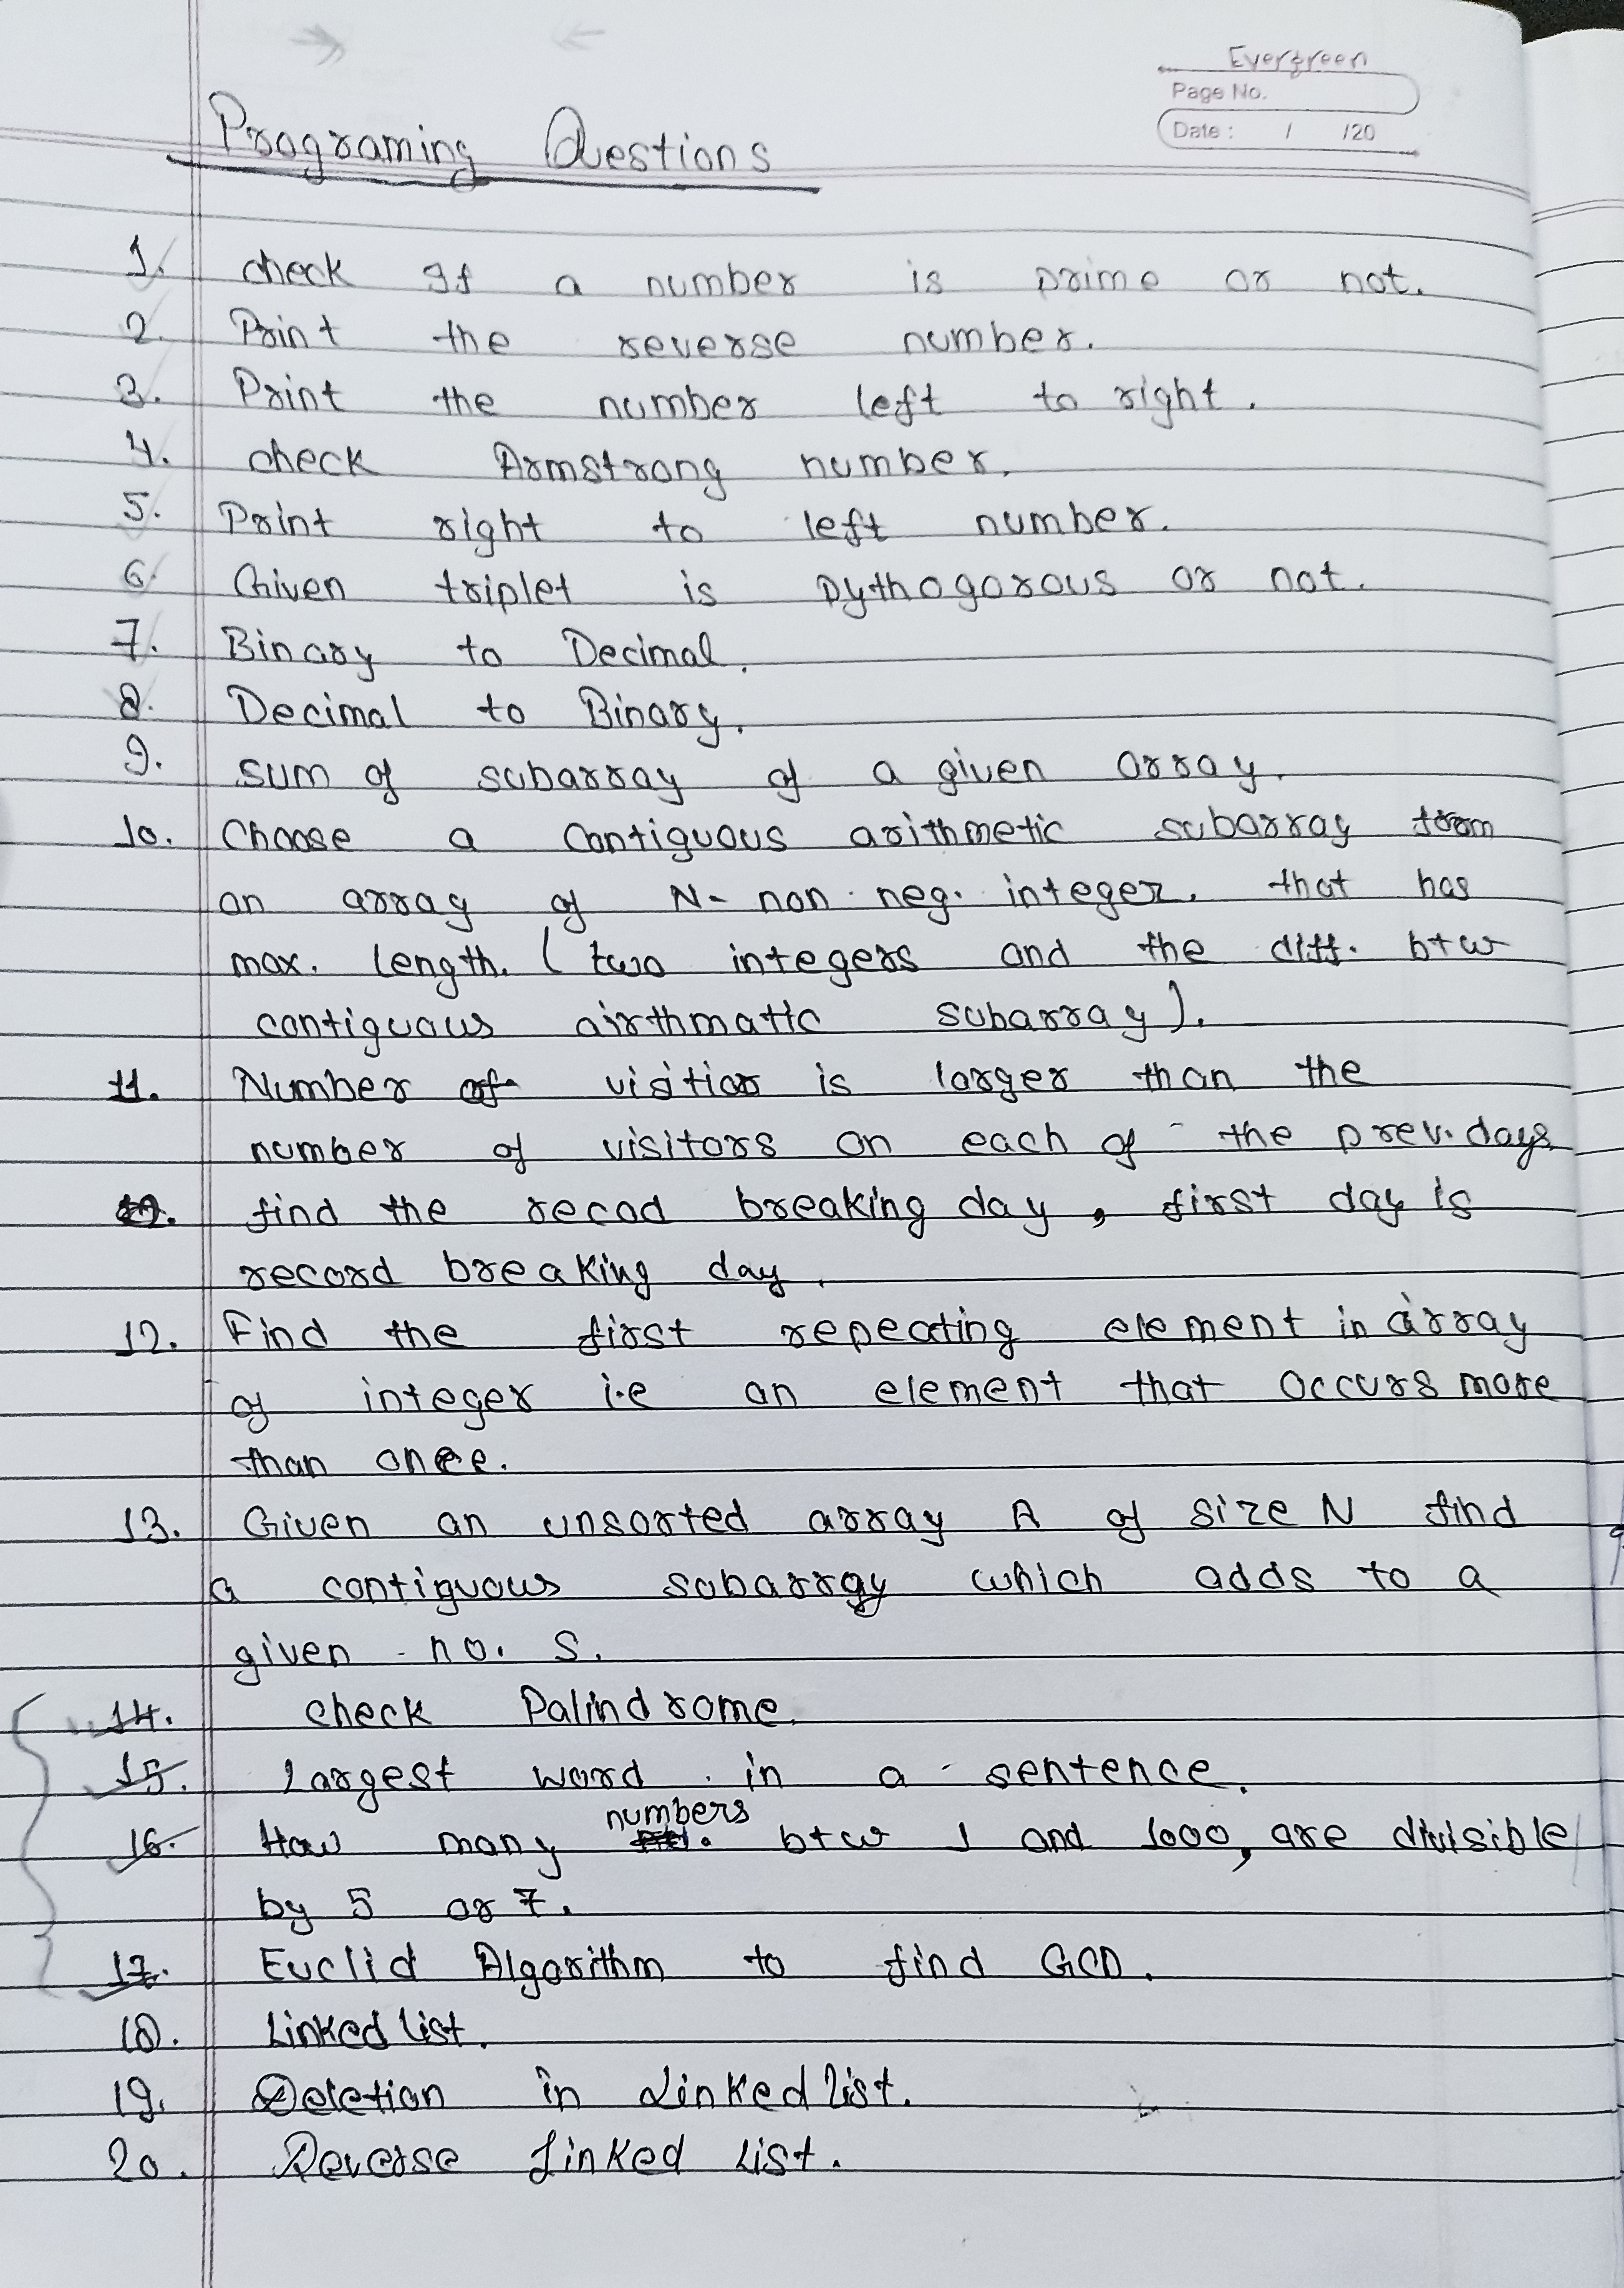 Evergreen
Page No.
Date : / /20
Programing Questions
1. check If a number is prime or not.
2. Print the reverse number.
3. Print the number left to right.
4. check Armstrong number.
5. Print right to left number.
6. Given triplet is pythogorous or not.
7. Binary to Decimal.
8. Decimal to Binary.
9. sum of subarray of a given array.
10. Choose a contiguous arithmetic subarray from
an array of N- non-neg. integer. that has
max. length. ( two integers and the diff. btw
contiguous airthmatic subarray ).
11. Number of visitior is larger than the
number of visitors on each of the prev. days.
find the recod breaking day, first day is
record breaking day.
12. Find the first repeating element in array
of integer i.e an element that occurs more
than once.
13. Given an unsorted array A of size N find
a contiguous subarray which adds to a
given no. S.
14. check Palindrome.
15. Largest word in a sentence.
16. How many numbers btw 1 and 1000, are divisible
by 5 or 7.
17. Euclid Algorithm to find GCD.
18. Linked list.
19. Deletion in Linked list.
20. Reverse Linked List.